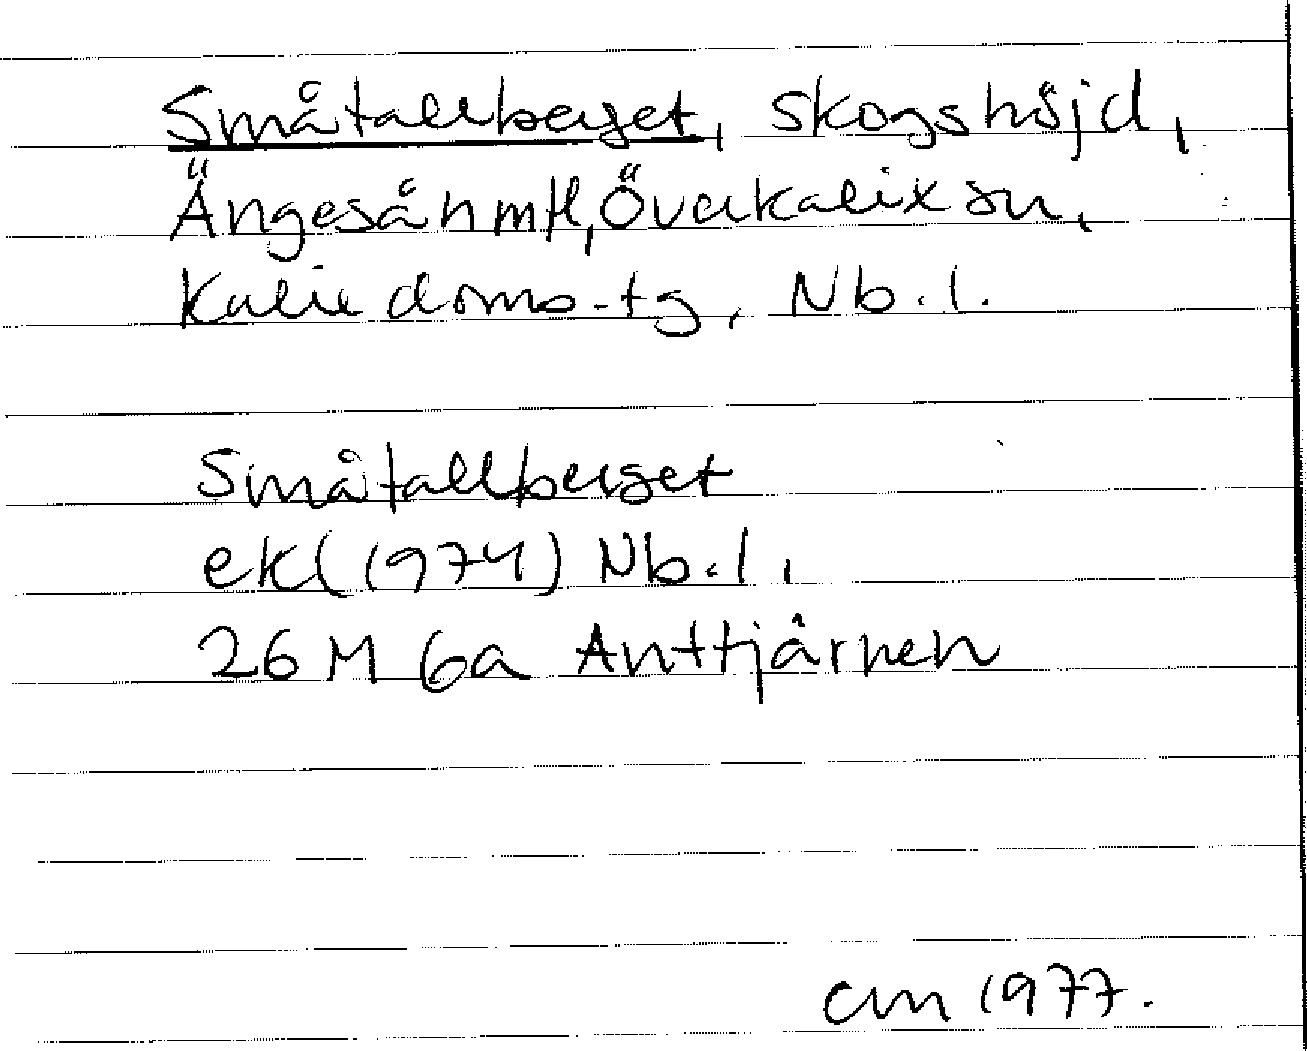 Småtallberget, skogshöjd,
Ängesån mtl, Överkalix sn,
Kalix doms-tg, Nb.l.
Småtallberget
ek (1974) Nb.l,
26 M 6a Anttjärnen
cm 1977.